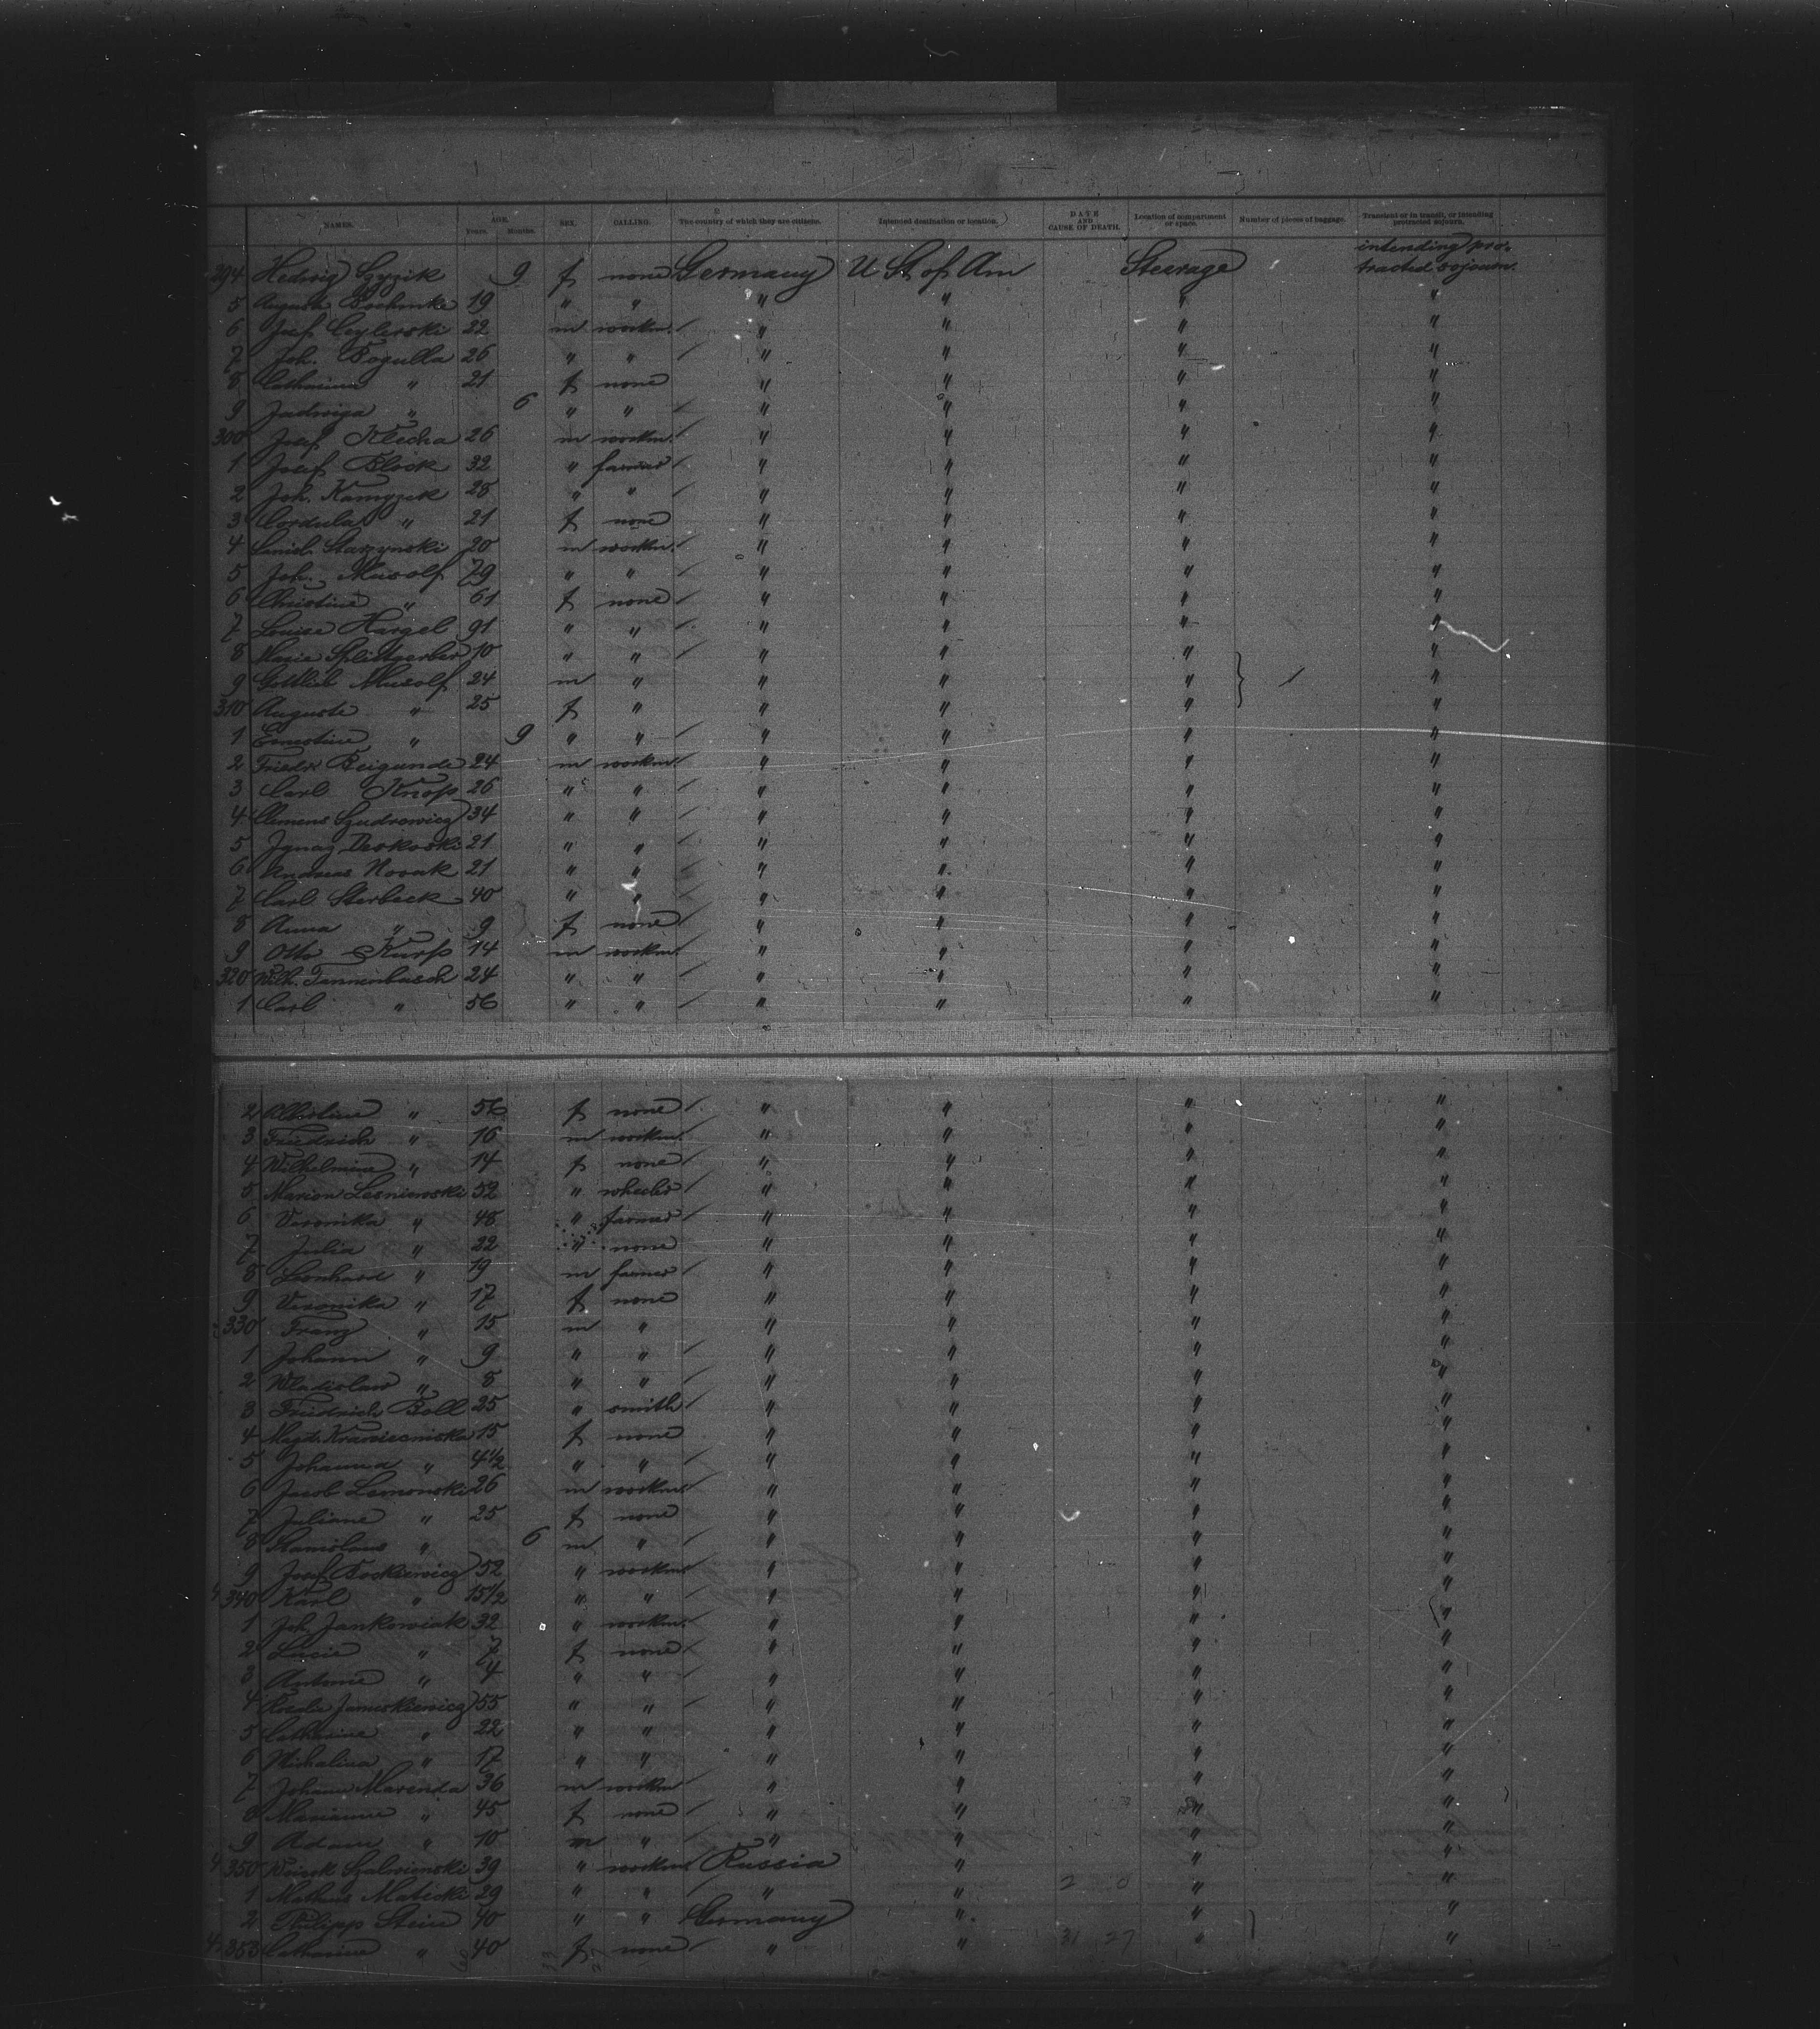 NAMES. AGE. Years. Months. SEX. CALLING. The country of which they are citizens. Intended destination or location. DATE AND CAUSE OF DEATH. Location of compartment or space. Number of pieces of baggage. Transient or in transit, or intending protracted sojourn.
294 Hedwig 9 f none Germany U St of Am Steerage intending protracted sojourn
5 Auguste 19 " " " " " "
6 Josef 22 m workm. " " " "
7 Joh. Bogulla 26 " " " " " "
8 Catharina " 21 f none " " " "
9 Jadwiga " 6 " " " " " "
300 Josef Klecha 26 m workm. " " " "
1 Josef Block 32 " farmer " " " "
2 Joh. 28 " " " " " "
3 Cordula " 21 f none " " " "
4 Starzynski 20 m workm. " " " "
5 Joh. Musolf 29 " " " " " "
6 Christine " 61 f none " " " "
7 Louise Hargel 91 " " " " " "
8 Marie Splittgerber 10 " " " " " "
9 Gottlieb Musolf 24 m " " " " 1 "
310 Auguste " 25 f " " " " "
1 Ernestine " 9 " " " " " "
2 Friedr. 24 m workm. " " " "
3 Carl Knop 26 " " " " " "
4 Clemens 34 " " " " " "
5 Ignaz 21 " " " " " "
6 Andreas Novak 21 " " " " " "
7 Carl Sterbeck 40 " " " " " "
8 Anna " 9 f none " " " "
9 Otto 14 m workm. " " " "
320 Wilh. Tannenbusch 24 " " " " " "
1 Carl " 56 " " " " " "
2 Albertine " 56 f none " " " "
3 Friedrich " 16 m workm. " " " "
4 Wilhelmine " 14 f none " " " "
5 Marion Lesniewski 52 " wheeler " " " "
6 Veronika " 48 " farmer " " " "
7 Julia " 22 " none " " " "
8 Leonhard " 19 m farmer " " " "
9 Veronika " 17 f none " " " "
330 Franz " 15 m " " " " "
1 Johann " 9 " " " " " "
2 Wladislaw " 8 " " " " " "
3 Friedrich Boll 25 " smith " " " "
4 Magd. 15 f none " " " "
5 Johanna " 4½ " " " " " "
6 Jacob 26 m workm " " " "
7 Juliane " 25 f none " " " "
8 Stanislaus " 6 m " " " " "
9 Josef 52 " workm " " " "
340 Karl " 15½ " " " " " "
1 Joh. Jankowiak 32 " workm. " " " "
2 Lucie " 7 f none " " " "
3 Antonie " 4 " " " " " "
4 Rosalie 55 " " " " " "
5 Catharine " 22 " " " " " "
6 Michalina " 17 " " " " " "
7 Johann Marenda 36 m workm " " " "
8 Marianne " 45 f none " " " "
9 Adam " 10 m " " " " "
350 39 " workm Russia " " "
1 Matheus Maticki 29 " " " " " "
2 Philipp Stein 40 " " Germany " " "
353 Catharine " 40 f none " " 31 27 " "